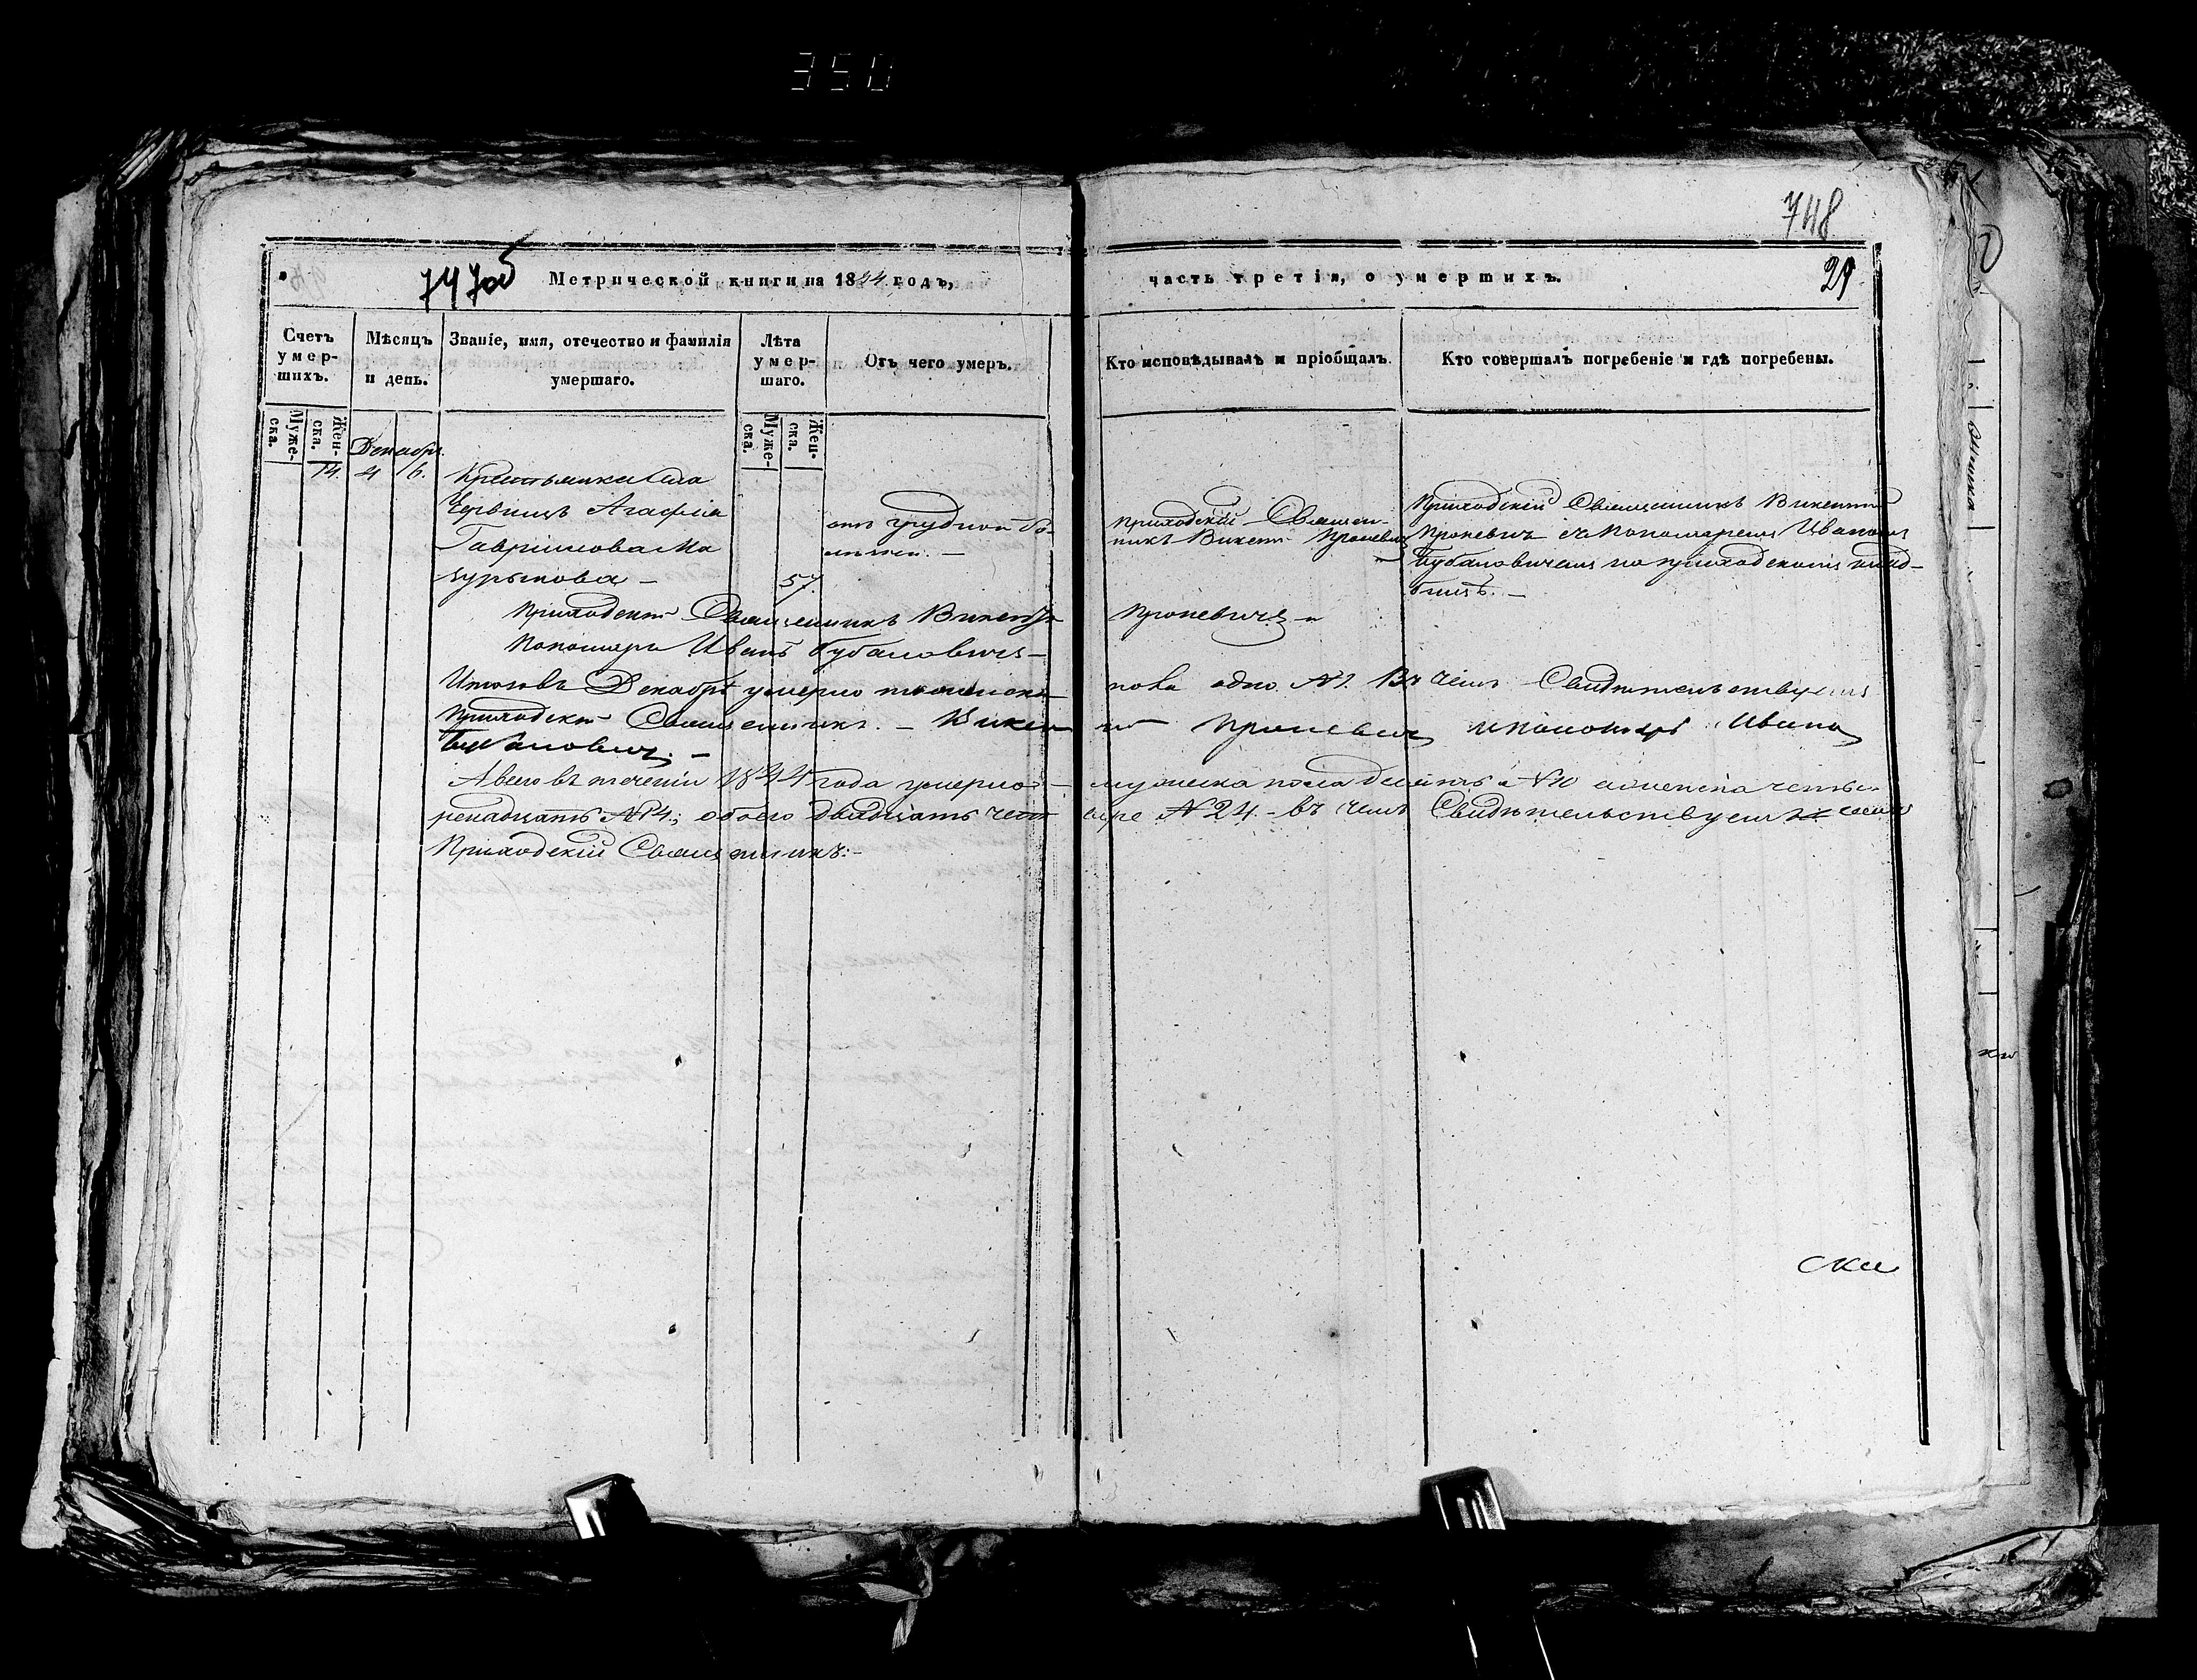 350
748
747об Метрической книги на 1844 годъ,
часть третія, о умершихъ. 29
Счетъ умер-
шихъ.
Мѣсяцъ
и день.
Званіе, имя, отечество и фамилія
умершаго.
Лѣта
умер-
шаго.
Отъ чего умеръ.
Кто исповѣдывалъ и пріобщалъ.
Кто совершалъ погребеніе и гдѣ погребены.
Муже-
ска.
Жен-
ска.
Муже-
ска.
Жен-
ска.
Декабрь
14. 4 6.
Крестьянка села
Агафія
Гавріилова Ма
зурыкова – 57.
отъ грудной бо-
лезни. –
Приходскій Священ-
никъ Викент Проневичъ
Приходскій Священникъ Викентій
Проневичъ съ Пономаремъ Иваномъ
Бубановичемъ на приходскомъ клад-
бищѣ. –
Приходскій Священникъ Викентій Проневичъ –
Пономарь Иванъ Бубановичъ –
Итого въ Декабрѣ умерло женска пола одно №1. Въ чемъ Свидѣтельствуемъ
Приходскій Священникъ. – Викентій Проневичъ и пономарь Иванъ
Бубановичъ. –
А всего въ теченіи 1844 года умерло – мужеска пола десять №10 женска четы-
ренадцать №14.; обоего двадцать четыре №24. – въ чемъ Свидѣтельствуемъ
Приходскій Священникъ: –
ски